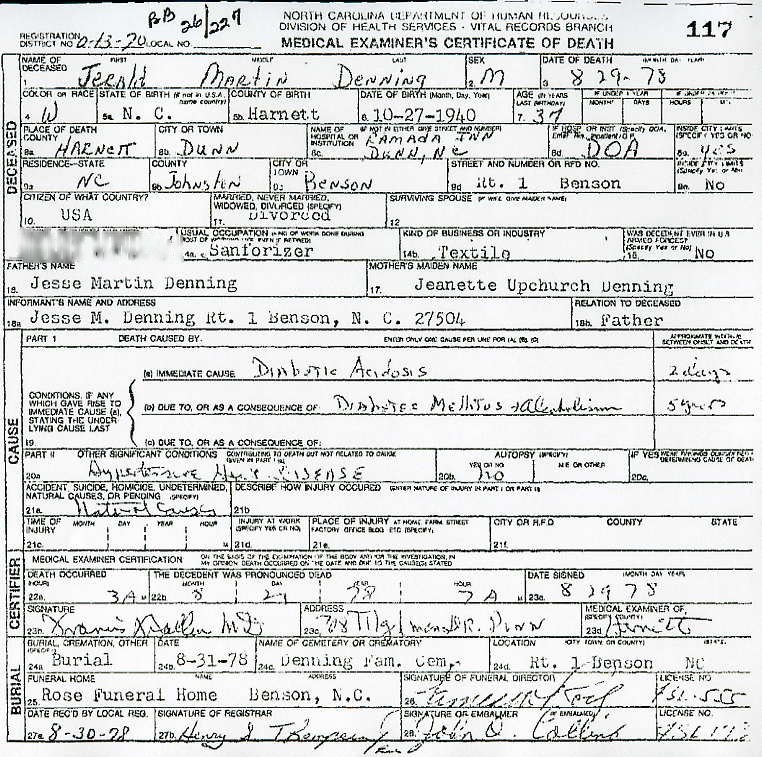 BB 26/227
NORTH CAROLINA DEPARTMENT OF HUMAN RESOURCES
DIVISION OF HEALTH SERVICES - VITAL RECORDS BRANCH
117
REGISTRATION DISTRICT NO. 0-43-70 LOCAL NO.
MEDICAL EXAMINER'S CERTIFICATE OF DEATH
NAME OF DECEASED FIRST MIDDLE LAST SEX DATE OF DEATH (MONTH DAY YEAR)
1. Jerald Martin Denning 2. M 3. 8 29-78
COLOR OR RACE STATE OF BIRTH (If not in U.S.A. name country) COUNTY OF BIRTH DATE OF BIRTH (Month, Day, Year) AGE (IN YEARS LAST BIRTHDAY) IF UNDER 1 YEAR MONTHS DAYS HOURS
4. W 5a. N. C. 5b. Harnett 6. 10-27-1940 7. 37
PLACE OF DEATH COUNTY CITY OR TOWN NAME OF HOSPITAL OR INSTITUTION (IF NOT IN EITHER GIVE STREET AND NUMBER) IF HOSP OR INST (Specify DOA, INSIDE CITY LIMITS (Specify Yes or No)
8a. HARNETT 8b. DUNN 8c. RAMADA INN DUNN, NC 8d. DOA 8e. yes
RESIDENCE-STATE COUNTY CITY OR TOWN STREET AND NUMBER OR RFD NO. INSIDE CITY LIMITS (Specify Yes or No)
9a. NC 9b. Johnston 9c. Benson 9d. Rt. 1 Benson 9e. No
CITIZEN OF WHAT COUNTRY? MARRIED, NEVER MARRIED, WIDOWED, DIVORCED (SPECIFY) SURVIVING SPOUSE (IF WIFE, GIVE MAIDEN NAME)
10. USA 11. Divorced 12.
USUAL OCCUPATION (KIND OF WORK DONE DURING MOST OF WORKING LIFE, EVEN IF RETIRED) KIND OF BUSINESS OR INDUSTRY WAS DECEDENT EVER IN U.S. ARMED FORCES? (Specify Yes or No)
Sanforizer 14b. Textile 15. No
FATHER'S NAME MOTHER'S MAIDEN NAME
16. Jesse Martin Denning 17. Jeanette Upchurch Denning
INFORMANT'S NAME AND ADDRESS RELATION TO DECEASED
18a. Jesse M. Denning Rt. 1 Benson, N. C. 27504 18b. Father
PART 1 DEATH CAUSED BY. ENTER ONLY ONE CAUSE PER LINE FOR (A), (B), (C) APPROXIMATE INTERVAL BETWEEN ONSET AND DEATH
(a) IMMEDIATE CAUSE Diabetic Acidosis 2 days
CONDITIONS, IF ANY WHICH GAVE RISE TO IMMEDIATE CAUSE (a), STATING THE UNDERLYING CAUSE LAST
(b) DUE TO, OR AS A CONSEQUENCE OF Diabetes Mellitus + Alcoholism 5 years
19. (c) DUE TO, OR AS A CONSEQUENCE OF:
PART II OTHER SIGNIFICANT CONDITIONS CONTRIBUTING TO DEATH BUT NOT RELATED TO CAUSE GIVEN IN PART I (a) AUTOPSY (SPECIFY) YES OR NO M.E. OR OTHER IF YES WERE FINDINGS CONSIDERED IN DETERMINING CAUSE OF DEATH
20a. Hypertensive DISEASE 20b. NO 20c.
ACCIDENT, SUICIDE, HOMICIDE, UNDETERMINED, NATURAL CAUSES, OR PENDING (SPECIFY) DESCRIBE HOW INJURY OCCURED (ENTER NATURE OF INJURY IN PART I OR PART II)
21a. Natural Causes 21b.
TIME OF INJURY MONTH DAY YEAR HOUR INJURY AT WORK (SPECIFY YES OR NO) PLACE OF INJURY AT HOME FARM STREET FACTORY OFFICE BLDG. ETC (SPECIFY), CITY OR R.F.D. COUNTY STATE
21c. M 21d. 21e. 21f.
MEDICAL EXAMINER CERTIFICATION ON THE BASIS OF THE EXAMINATION OF THE BODY AND/OR THE INVESTIGATION, IN MY OPINION DEATH OCCURRED ON THE DATE AND DUE TO THE CAUSE(S) STATED
DEATH OCCURRED HOUR THE DECEDENT WAS PRONOUNCED DEAD MONTH DAY YEAR HOUR DATE SIGNED (MONTH DAY YEAR)
22a. 3A M 22b. 8 29 78 7 A M 23a. 8 29 78
SIGNATURE ADDRESS MEDICAL EXAMINER OF (SPECIFY COUNTY)
23b. M.D. 23c. 708 Tilghman DR. Dunn 23d. Harnett
BURIAL, CREMATION, OTHER (SPECIFY) DATE NAME OF CEMETERY OR CREMATORY LOCATION (CITY TOWN, OR COUNTY) STATE
24a. Burial 24b. 8-31-78 24c. Denning Fam. Cem. 24d. Rt. 1 Benson NC
FUNERAL HOME NAME ADDRESS SIGNATURE OF FUNERAL DIRECTOR LICENSE NO
25. Rose Funeral Home Benson, N.C. 26.
DATE REC'D BY LOCAL REG. SIGNATURE OF REGISTRAR SIGNATURE OF EMBALMER (IF EMBALMED) LICENSE NO.
27a. 8-30-78 27b. Henry S Thompson 28. John D. Collins
DECEASED
CAUSE
CERTIFIER
BURIAL